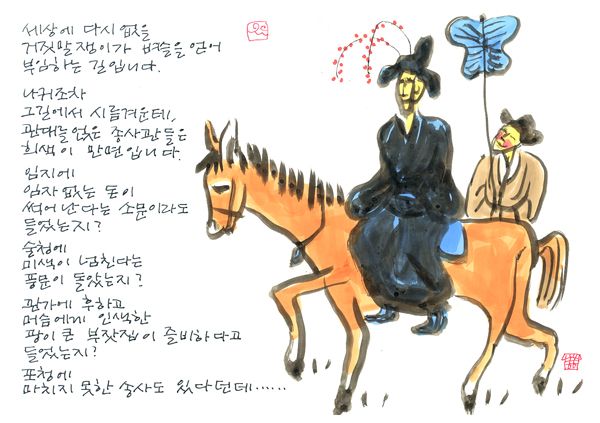 세상에 다시 없을
거짓말쟁이가 벼슬을 얻어
부임하는 길입니다.
나귀조차
그길에서 시름겨운데,
관대를 얹은 종사관들은
희색이 만면입니다.
임지에
임자 없는 돈이
썩어 난다는 소문이라도
들었는지?
술청에
미색이 넘친다는
풍문이 돌았는지?
관가에 후하고
머슴에게 인색한
광이 큰 부잣집이 즐비하다고
들었는지?
포청에
마치지 못한 송사도 있다던데……